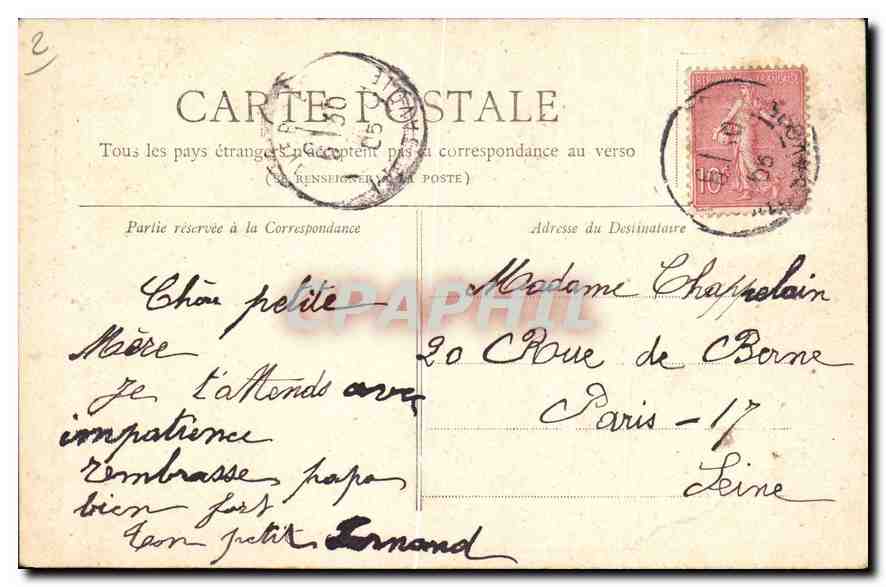 2
CARTE POSTALE
Tous les pays étrangers n'acceptent pas la correspondance au verso
(SE RENSEIGNER A LA POSTE)
Partie réservée à la Correspondance
Chère petite
Mère
Je t'attends avec
impatience
rembrasse papa
bien fort
Ton petit Fernand
Adresse du Destinataire
Madame Chappelain
20 Rue de Berne
Paris - 17
Seine
10
CPAPHIL